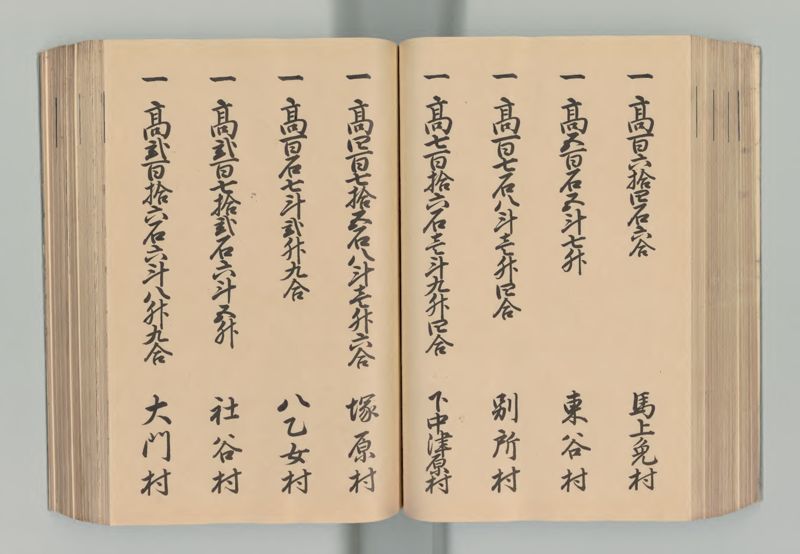 一 髙百六拾四石六合 馬上免村
一 髙五百石五斗七升 東谷村
一 髙百七石八斗壱升四合 別所村
一 髙七百拾六石壱斗九升四合 下中津原村
一 髙四百七拾五石八斗壱升六合 塚原村
一 髙百石七斗弐升九合 八乙女村
一 髙弐百七拾弐石六斗五升 社谷村
一 髙弐百拾六石六斗八升九合 大門村